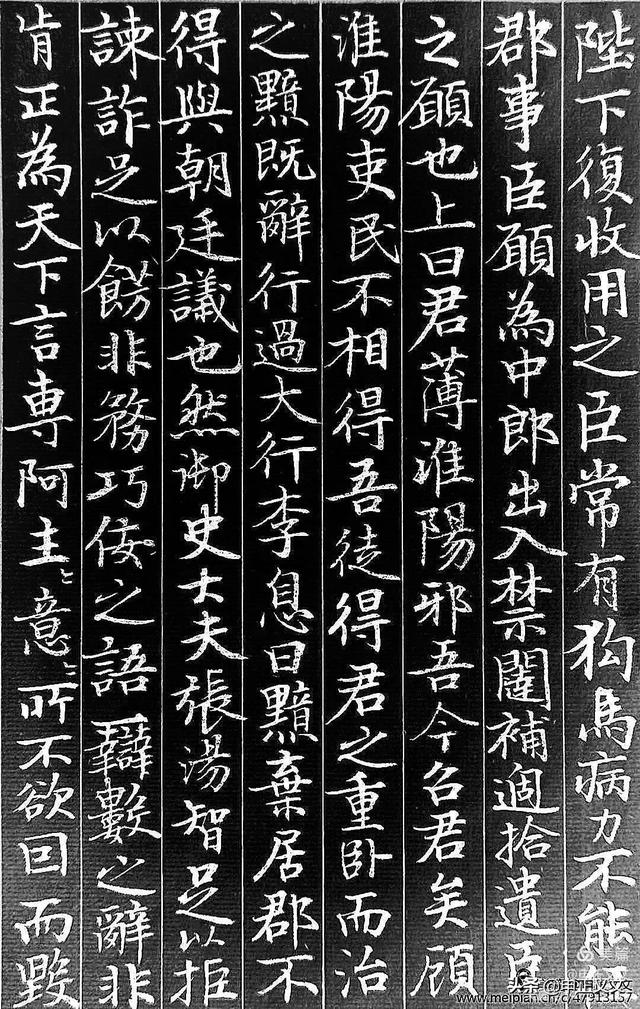 陛下復收用之臣常有狗馬病力不能
郡事臣願為中郎出入禁闥補過拾遺臣
之願也上曰君薄淮陽邪吾今召君矣顧
淮陽吏民不相得吾徒得君之重臥而治
之黯既辭行過大行李息曰黯棄居郡不
得與朝廷議也然御史大夫張湯智足以拒
諫詐足以餝非務巧佞之語辯數之辭非
肯正為天下言專阿主〻意〻所不欲因而毀
美篇
头条
www.meipian.cn/c/47913157